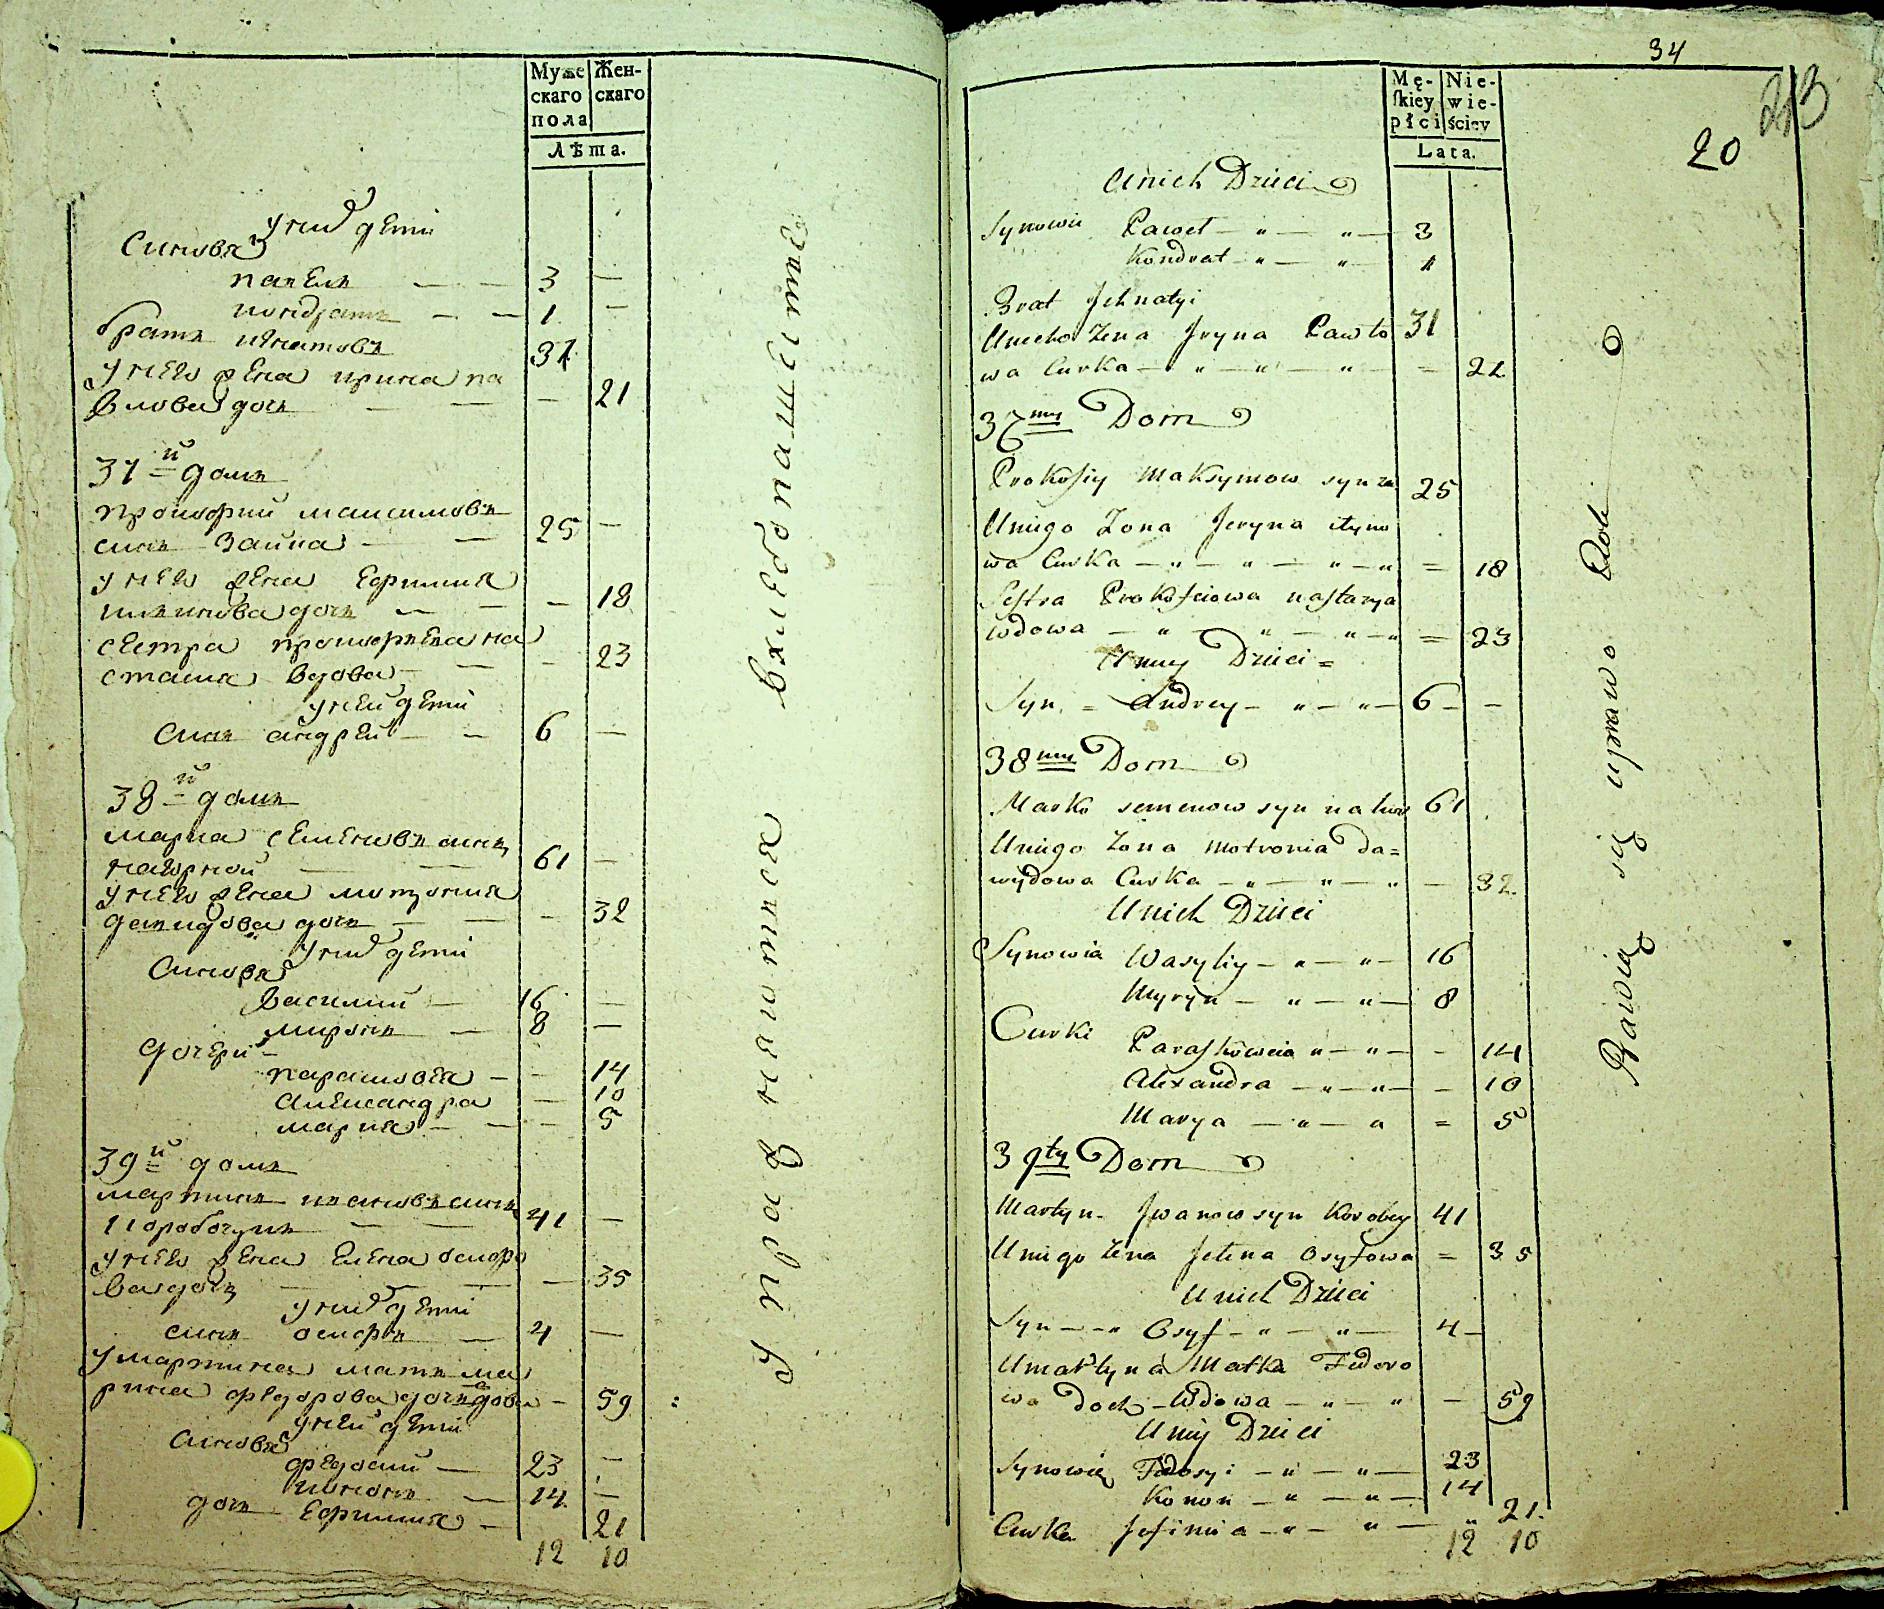 Муже
скаго
пола
Жен-
скаго
Лѣта.
У них дети
Синовя
павелъ — — 3 —
кондратъ — — 1 —
братъ игнатовъ 31
У него жена ирина па
влова дочь — — — 21
37й домъ
прокофий максимовъ
синъ Заика — — 25 —
У него жена Ефимия
дочь — — — 18
сестра прокофиева на
стасия вдова — — — 23
У ней дети
Синъ андрей — — 6 —
38й домъ
марка Семеновъ синъ
нагорной — — 61 —
У него жена мотрония
давидова дочь — — — 32
У них дети
Синовя
Василий — 16 —
миронъ — 8 —
дочери
парасковея — — 14
Александра — 10
мария — — — 5
39й домъ
мартинъ ивановъ синъ
коробочкинъ — — 41 —
У него жена Елена осифо
ва дочь — — — — 35
У них дети
синъ осифъ — 4 —
У мартина мать ма
рина федорова дочь вдова — 59 :
У ней дети
Синовя
федосий — 23 —
Кононъ — 14 —
дочь Ефимия — 21
12 10
Управляютъся хлебопашествомъ
34
213
20
Mę-
skiey
płci
Nie-
wie-
ściey
Lata.
Unich Dzieci
Synowie Paweł — " — " — 3
Kondrat — " — " — 1
Brat Jehnatyi
Uneho Zena Jryna Pawło 31
wa Curka — " — " — " — = 21
37my Dom
Prokofiy Maksymow syn za 25
Uniego Zona Jeryna
wa Curka — " — " — " — " = 18
Sestra Prokofiowa nastazya
wdowa — " — " — " — " = 23
Uniey Dzieci =
Syn = Andrey — " — " — 6 — —
38my Dom
Marko semenow syn nahor 61
Uniego Zona motronia da=
wydowa Curka — " — " — " — 32
Unich Dzieci
Synowia Wasyliy — " — " — 16
Myryn — " — " — 8
Curki Paraskoweia " — " — - 14
Alexandra — " — " — - 10
Marya — " — " = 5
39ty Dom
Martyn Jwanow syn Korobey 41
Uniego Zena Jelena Osyfowa = 35
Unich Dzieci
Syn — " Osyf — " — " — 4 —
Umartyna Matka Fedoro
wa Doch — Wdowa — " — " — 59
Uniy Dzieci
Synowie Fedosyi — " — " — 23
Konon — " — " — 14
Curka Jefimia — " — " — " 21
12 10
Bawią się uprawo Roli